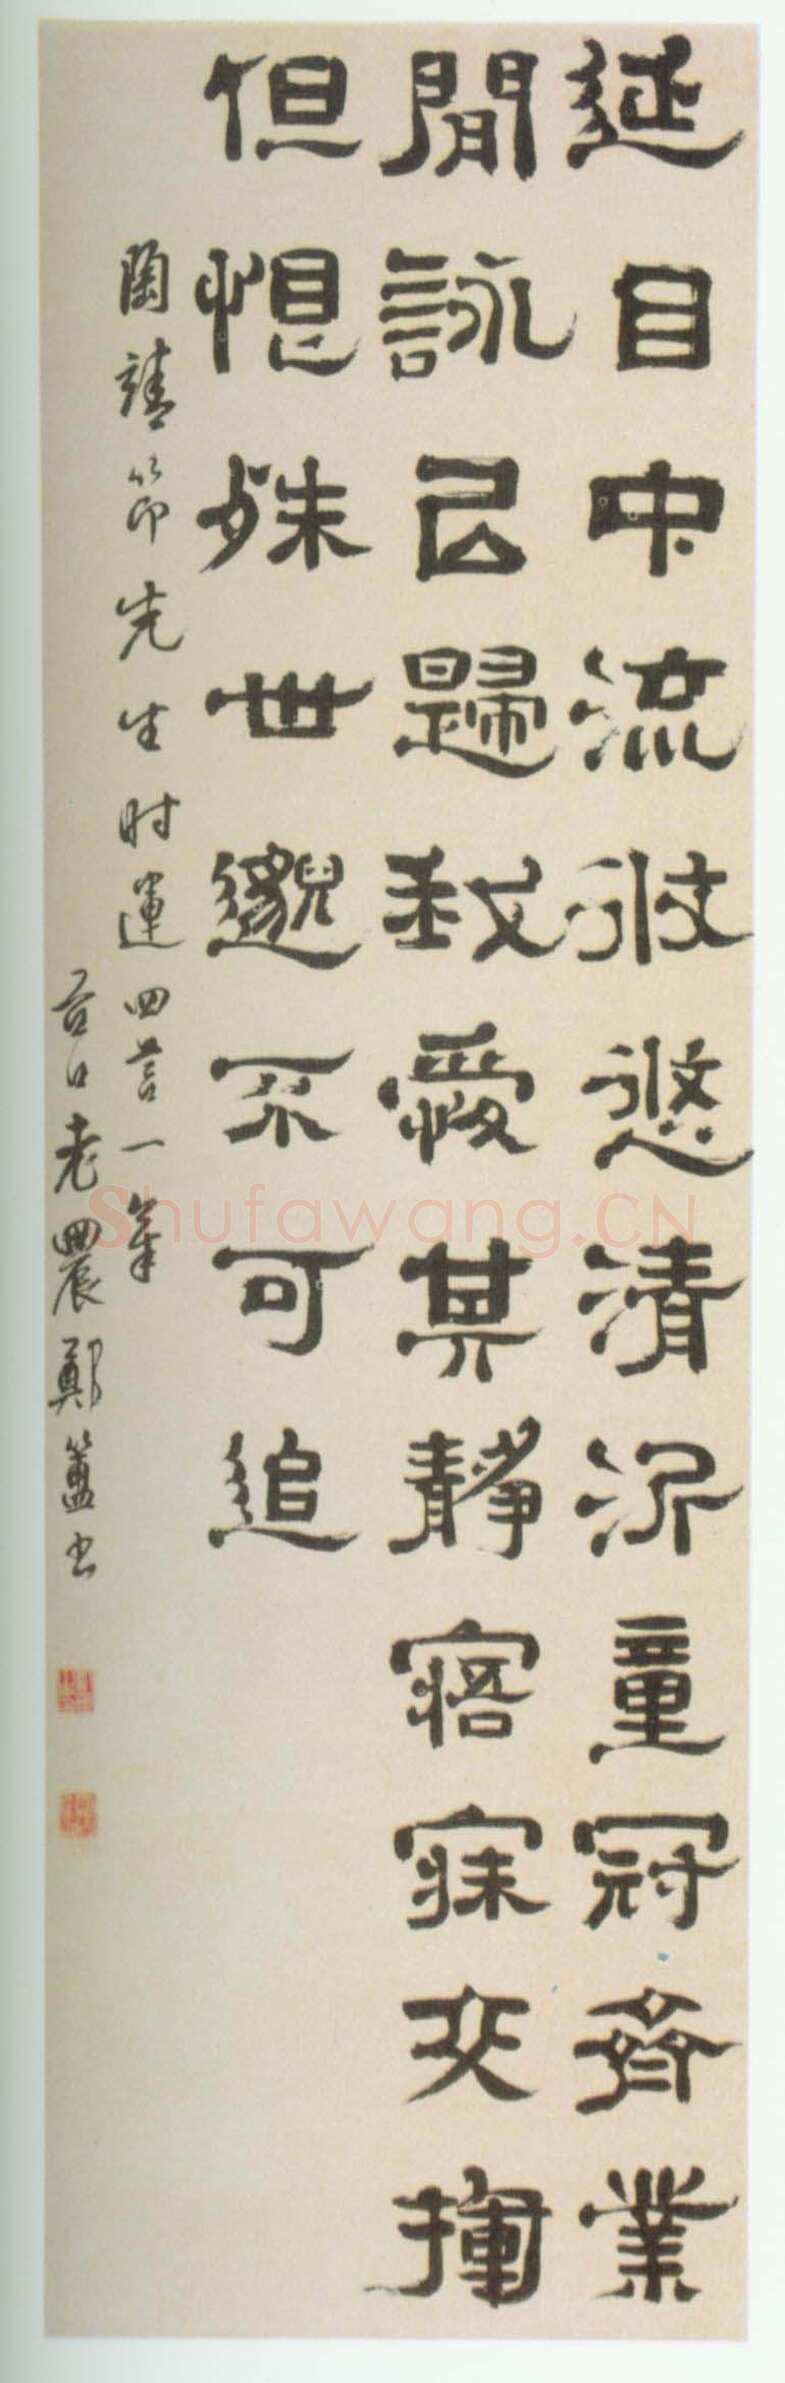 延目中流攸悠清沂童冠齊業
閒詠以歸我愛其靜寤寐交揮
但恨殊世邈不可追
陶靖節先生时運四言一章
谷口老農鄭簠書
Shufawang.CN